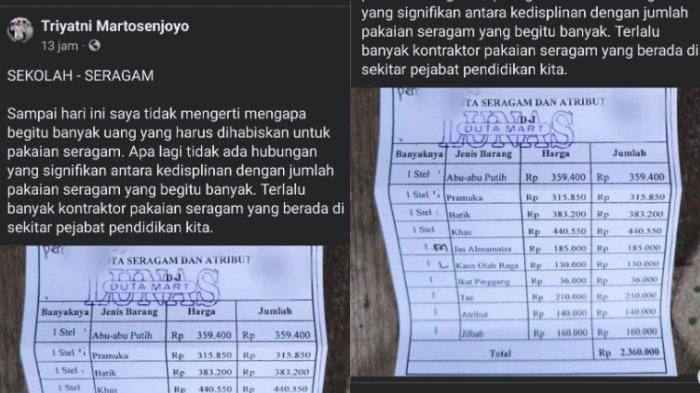 Triyatni Martosenjoyo
13 jam
SEKOLAH - SERAGAM
Sampai hari ini saya tidak mengerti mengapa
begitu banyak uang yang harus dihabiskan untuk
pakaian seragam. Apa lagi tidak ada hubungan
yang signifikan antara kedisplinan dengan jumlah
pakaian seragam yang begitu banyak. Terlalu
banyak kontraktor pakaian seragam yang berada di
sekitar pejabat pendidikan kita.
OTA SERAGAM DAN ATRIBUT
LUNAS
DUTA MART
Banyaknya Jenis Barang Harga Jumlah
1 Stel Abu-abu Putih Rp 359.400 Rp 359.400
1 Stel Pramuka Rp 315.850 Rp 315.850
1 Stel Batik Rp 383.200 Rp 383.200
1 Stel Khas Rp 440.550 Rp 440.550
yang signifikan antara kedisplinan dengan jumlah
pakaian seragam yang begitu banyak. Terlalu
banyak kontraktor pakaian seragam yang berada di
sekitar pejabat pendidikan kita.
OTA SERAGAM DAN ATRIBUT
LUNAS
DUTA MART
Banyaknya Jenis Barang Harga Jumlah
1 Stel Abu-abu Putih Rp 359.400 Rp 359.400
1 Stel Pramuka Rp 315.850 Rp 315.850
1 Stel Batik Rp 383.200 Rp 383.200
1 Stel Khas Rp 440.550 Rp 440.550
1 M Jas Almamater Rp 185.000 Rp 185.000
1 L Kaos Olah Raga Rp 130.000 Rp 130.000
1 Ikat Pinggang Rp 36.000 Rp 36.000
1 Tas Rp 210.000 Rp 210.000
1 Atribut Rp 140.000 Rp 140.000
1 Jilbab Rp 160.000 Rp 160.000
Total Rp 2.360.000